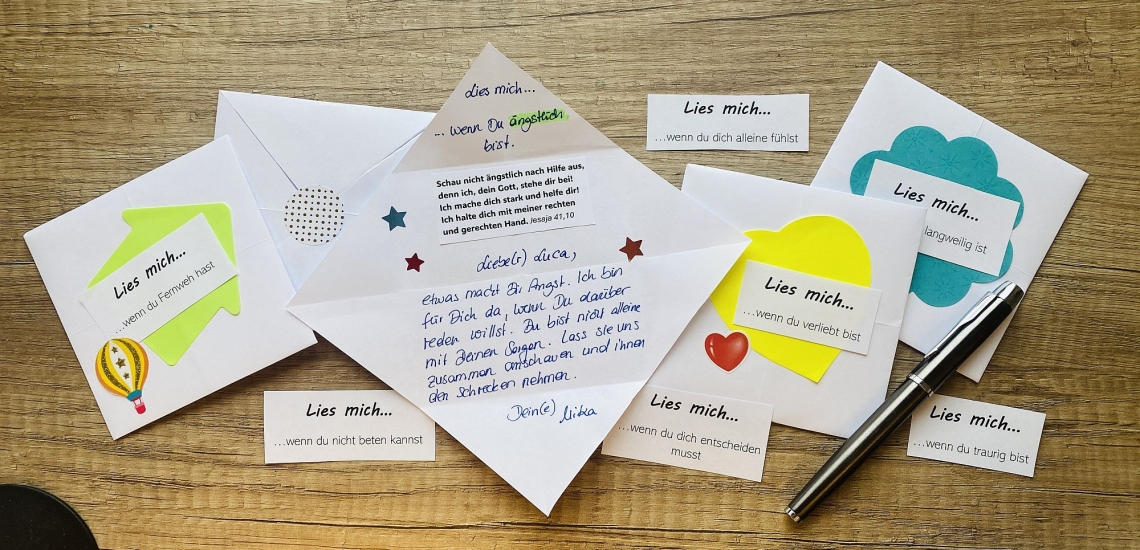 Lies mich...
...wenn du Fernweh hast
Lies mich...
... wenn Du ängstlich
bist.
Schau nicht ängstlich nach Hilfe aus,
denn ich, dein Gott, stehe dir bei!
Ich mache dich stark und helfe dir!
Ich halte dich mit meiner rechten
und gerechten Hand. Jesaja 41,10
Liebe(r) Luca,
etwas macht Dir Angst. Ich bin
für Dich da, wenn Du darüber
reden willst. Du bist nicht alleine
mit Deinen Sorgen. Lass sie uns
zusammen anschauen und ihnen
den Schrecken nehmen.
Dein(e) Mika
Lies mich...
...wenn du nicht beten kannst
Lies mich...
...wenn du dich alleine fühlst
Lies mich...
...wenn du verliebt bist
Lies mich...
...wenn du dich entscheiden
musst
Lies mich...
langweilig ist
Lies mich...
...wenn du traurig bist